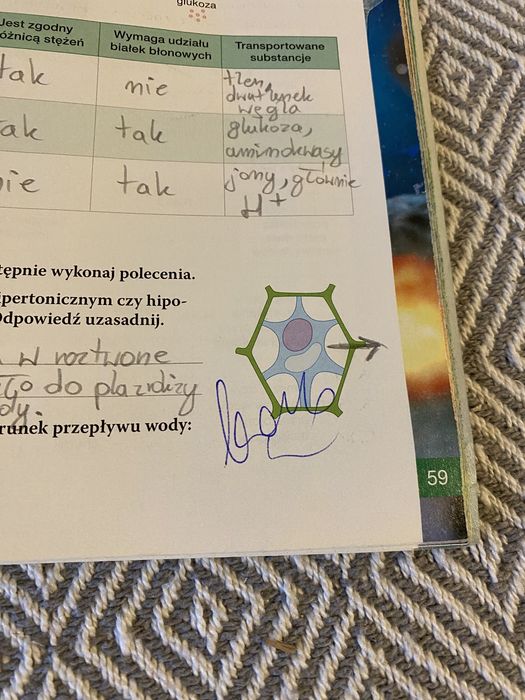 glukoza
Jest zgodny
różnicą stężeń
Wymaga udziału
białek błonowych
Transportowane
substancje
tak
nie
tlen,
dwutlenek
węgla
tak
tak
glukoza,
aminokwasy
nie
tak
jony, głównie
H+
tępnie wykonaj polecenia.
ipertonicznym czy hipo-
Odpowiedź uzasadnij.
w roztwone
ego do plazmolizy
ody.
runek przepływu wody:
59